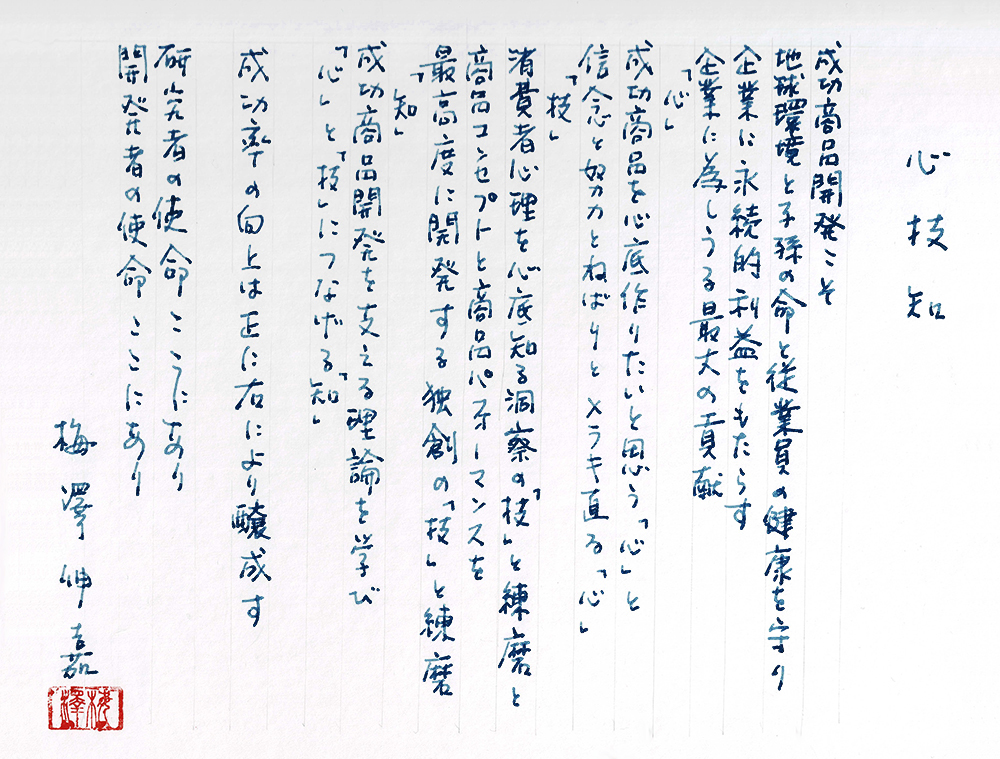 心技知
成功商品開発こそ
地球環境と子孫の命と従業員の健康を守り
企業に永続的利益をもたらす
企業に為しうる最大の貢献
「心」
成功商品を心底作りたいと思う「心」と
信念と努力とねばりとヒラキ直る「心」
「技」
消費者心理を心底知る洞察の「技」と練磨と
商品コンセプトと商品パフォーマンスを
最高度に開発する独創の「技」と練磨
「知」
成功商品開発を支える理論を学び
「心」と「技」につなげる「知」
成功率の向上は正に右により醸成す
研究者の使命ここにあり
開発者の使命ここにあり
梅澤伸嘉
梅澤